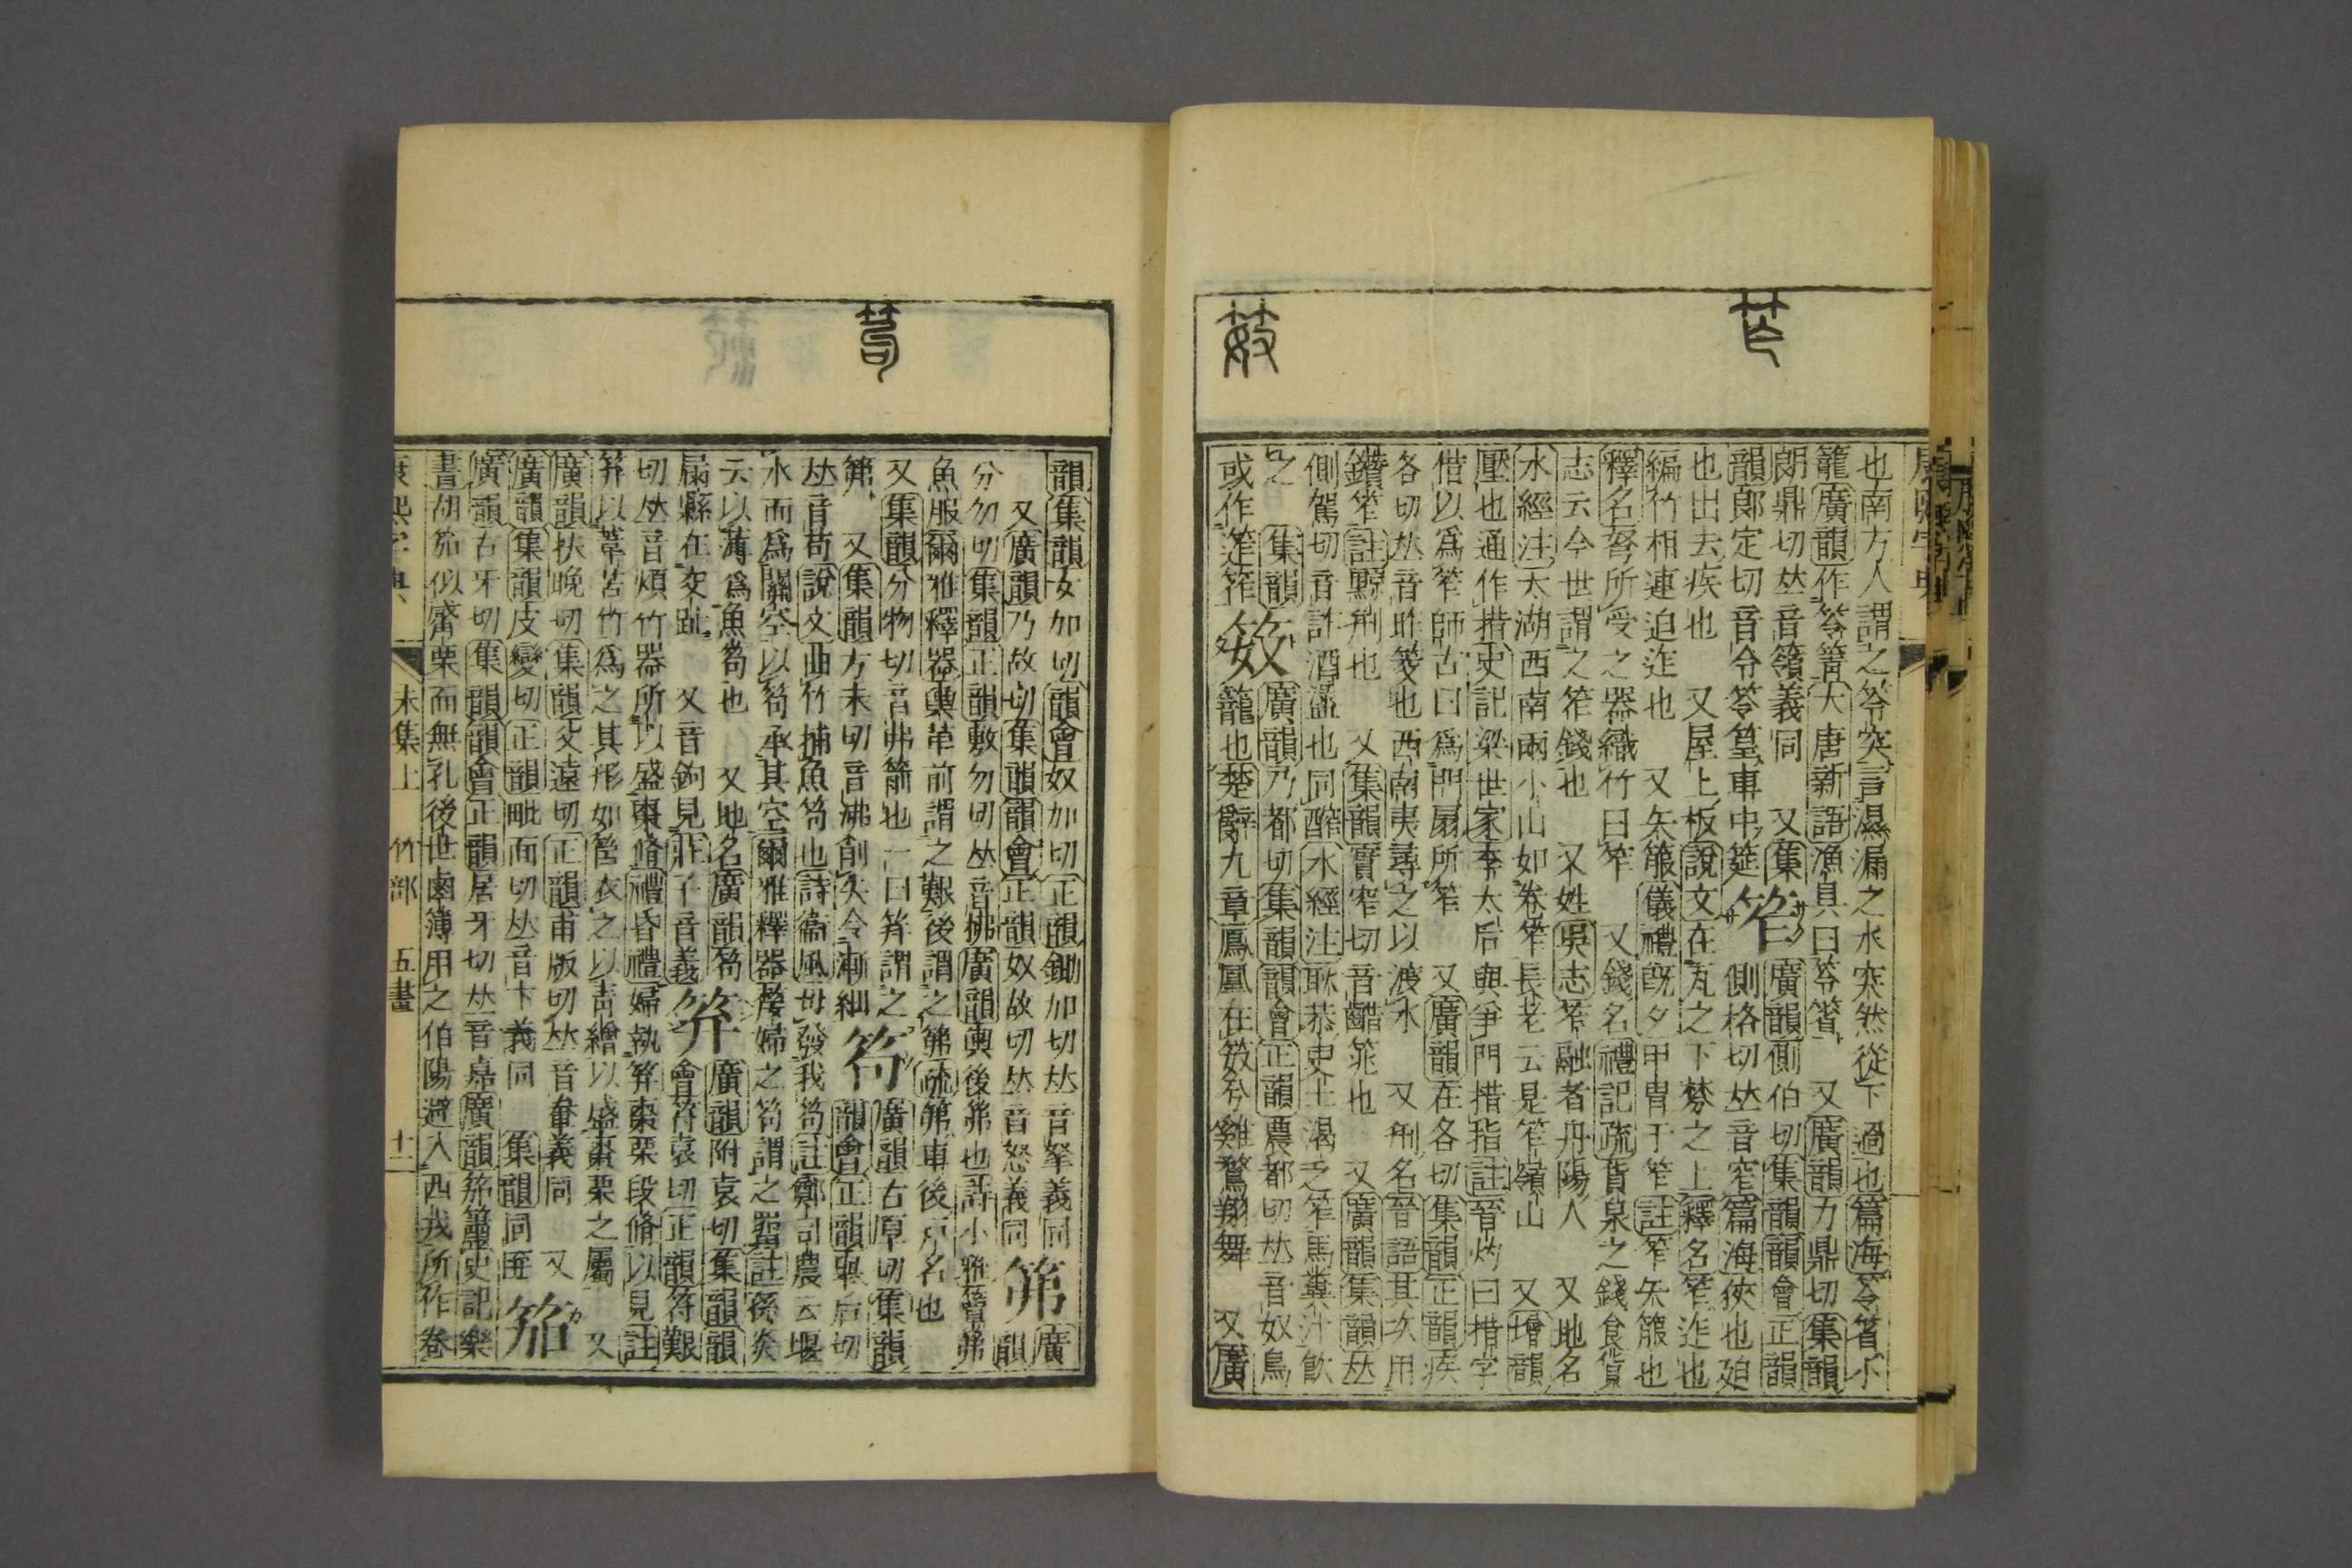 也南方人謂之笭突言濕漏之水突然從下過也篇海笭箵小
籠廣韻作笭篢大唐新語漁具曰笭箵 又廣韻力鼎切集韻
朗鼎切𠀤音嶺義同 又集 笮 廣韻側伯切集韻韻會正韻
韻郞定切音令笭篁車中筳 側格切𠀤音窄篇海狹也廹
也出去疾也 又屋上板說文在瓦之下棼之上釋名笮迮也
編竹相連迫迮也 又矢箙儀禮旣夕甲冑干笮註笮矢箙也
釋名弩所受之器織竹曰笮 又錢名禮記疏貨泉之錢食貨
志云今世謂之笮錢也 又姓吳志笮融者丹陽人 又地名
水經注太湖西南兩小山如卷笮長老云是笮嶺山 又增韻
壓也通作措史記梁世家李太后與爭門措指註晉灼曰措字
借以爲笮師古曰爲門扇所笮 又廣韻在各切集韻正韻疾
各切𠀤音昨筊也西南夷尋之以渡水 又𠛬名晉語其次用
鑽笮註黥𠛬也 又集韻實窄切音齰筰也 又廣韻集韻𠀤
側駕切音詐酒盪也同醡水經注耿恭吏士渴乏笮馬糞汁飮
之 集韻 笯 廣韻乃都切集韻韻會正韻農都切𠀤音奴鳥
或作筰 籠也楚辭九章鳳凰在笯兮雞鶩翔舞 又廣
韻集韻女加切韻會奴加切正韻鋤加切𠀤音拏義同 笰 廣
又廣韻乃故切集韻韻會正韻奴故切𠀤音怒義同 韻
分勿切集韻正韻敷勿切𠀤音拂廣韻輿後笰也詩小雅簟笰
魚服爾雅釋器輿革前謂之艱後謂之笰疏笰車後戸名也
又集韻分物切音弗箭也一曰筓謂之 笱 廣韻古厚切集韻
笰 又集韻方未切音沸削矢令漸細 韻會正韻舉后切
𠀤音苟說文曲竹捕魚笱也詩衞風毋發我笱註鄭司農云堰
水而爲關空以笱承其空爾雅釋器嫠婦之笱謂之罶註孫炎
云以薄爲魚笱也 又地名廣韻笱 笲 廣韻附袁切集韻韻
屚縣在交趾 又音鉤見莊子音義 會符袁切正韻符艱
切𠀤音煩竹器所以盛棗脩禮昏禮婦執笲棗栗段脩以見註
笲以葦苦竹爲之其形如筥衣之以靑繒以盛棗栗之屬 又
廣韻扶晚切集韻父遠切正韻甫版切𠀤音奉義同 又
廣韻集韻皮變切正韻毗面切𠀤音卞義同 集韻同匥 笳
廣韻古牙切集韻韻會正韻居牙切𠀤音嘉廣韻笳簫史記樂
書胡笳似觱栗而無孔後世鹵簿用之伯陽避入西戎所作卷
康熙字典 未集上 竹部 五畫 十二